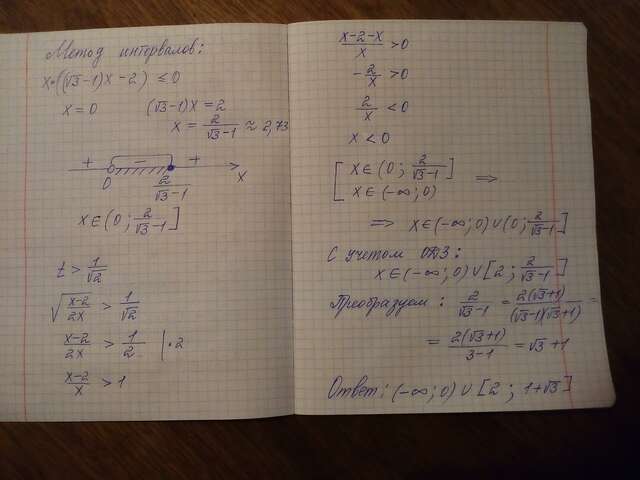 Метод интервалов:
x•((√3-1)x-2) ≤ 0
x = 0    (√3-1)x = 2
x = 2/(√3-1) ≈ 2,73
+ - +
0    2/(√3-1)    x
x ∈ (0; 2/(√3-1)]
t > 1/√2
√((x-2)/2x) > 1/√2
(x-2)/2x > 1/2 |•2
(x-2)/x > 1
(x-2-x)/x > 0
-2/x > 0
2/x < 0
x < 0
[ x ∈ (0; 2/(√3-1)]
x ∈ (-∞; 0) ⟹
⟹ x ∈ (-∞; 0) ∪ (0; 2/(√3-1)]
С учетом ОДЗ:
x ∈ (-∞; 0) ∪ [2; 2/(√3-1)]
Преобразуем: 2/(√3-1) = 2(√3+1)/((√3-1)(√3+1)) =
= 2(√3+1)/(3-1) = √3+1
Ответ: (-∞; 0) ∪ [2; 1+√3]